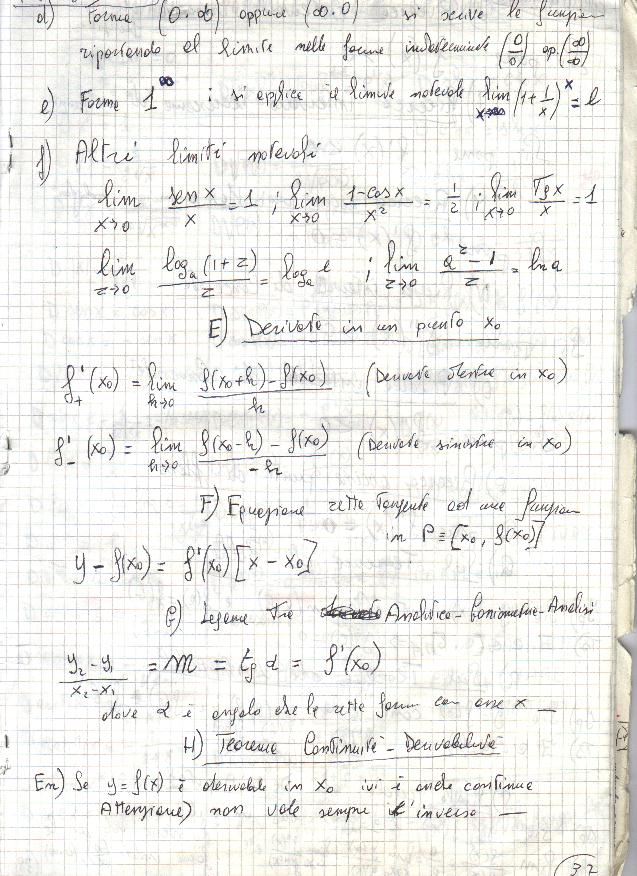 d) Forma (0·∞) oppure (∞·0) si scrive la funzion
riportando il limite nelle forme indeterminate (0/0) op. (∞/∞)
e) Forma 1^∞ ; si applica il limite notevole lim x→∞ (1+1/x)^x = e
f) Altri limiti notevoli
lim x→0 sen x/x = 1 ; lim x→0 1-cos x/x² = 1/2 ; lim x→0 Tg x/x = 1
lim z→0 log_a (1+z)/z = log_a e ; lim z→0 a^z - 1/z = ln a
E) Derivata in un punto x₀
f'₊(x₀) = lim h→0 f(x₀+h) - f(x₀)/h (Derivata destra in x₀)
f'₋(x₀) = lim h→0 f(x₀-h) - f(x₀)/-h (Derivata sinistra in x₀)
F) Equazione retta tangente ad una funzion
in P ≡ [x₀, f(x₀)]
y - f(x₀) = f'(x₀) [x - x₀]
G) Legame Tra Analitica - Goniometria - Analisi
y₂ - y₁/x₂ - x₁ = m = tg α = f'(x₀)
dove α è angolo che la retta forma con asse x —
H) Teorema Continuità - Derivabilità
En) Se y = f(x) è derivabile in x₀ ivi è anche continua
Attenzione) non vale sempre l'inverso —
37